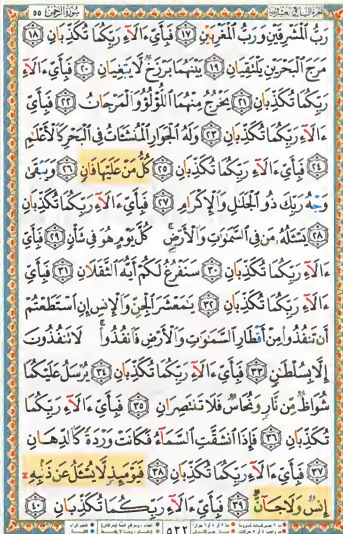 سُورَةُ الرَّحْمٰن ٥٥
رَبُّ ٱلْمَشْرِقَيْنِ وَرَبُّ ٱلْمَغْرِبَيْنِ ١٧ فَبِأَيِّ ءَالَآءِ رَبِّكُمَا تُكَذِّبَانِ ١٨
مَرَجَ ٱلْبَحْرَيْنِ يَلْتَقِيَانِ ١٩ بَيْنَهُمَا بَرْزَخٌ لَّا يَبْغِيَانِ ٢٠ فَبِأَيِّ ءَالَآءِ
رَبِّكُمَا تُكَذِّبَانِ ٢١ يَخْرُجُ مِنْهُمَا ٱللُّؤْلُؤُ وَٱلْمَرْجَانُ ٢٢ فَبِأَيِّ
ءَالَآءِ رَبِّكُمَا تُكَذِّبَانِ ٢٣ وَلَهُ ٱلْجَوَارِ ٱلْمُنشَـَٔاتُ فِى ٱلْبَحْرِ كَٱلْأَعْلَٰمِ
٢٤ فَبِأَيِّ ءَالَآءِ رَبِّكُمَا تُكَذِّبَانِ ٢٥ كُلُّ مَنْ عَلَيْهَا فَانٍ ٢٦ وَيَبْقَىٰ
وَجْهُ رَبِّكَ ذُو ٱلْجَلَٰلِ وَٱلْإِكْرَامِ ٢٧ فَبِأَيِّ ءَالَآءِ رَبِّكُمَا تُكَذِّبَانِ
٢٨ يَسْـَٔلُهُۥ مَن فِى ٱلسَّمَٰوَٰتِ وَٱلْأَرْضِ ۚ كُلَّ يَوْمٍ هُوَ فِى شَأْنٍ ٢٩ فَبِأَيِّ
ءَالَآءِ رَبِّكُمَا تُكَذِّبَانِ ٣٠ سَنَفْرُغُ لَكُمْ أَيُّهَ ٱلثَّقَلَانِ ٣١ فَبِأَيِّ
ءَالَآءِ رَبِّكُمَا تُكَذِّبَانِ ٣٢ يَٰمَعْشَرَ ٱلْجِنِّ وَٱلْإِنسِ إِنِ ٱسْتَطَعْتُمْ
أَن تَنفُذُوا۟ مِنْ أَقْطَارِ ٱلسَّمَٰوَٰتِ وَٱلْأَرْضِ فَٱنفُذُوا۟ ۚ لَا تَنفُذُونَ
إِلَّا بِسُلْطَٰنٍ ٣٣ فَبِأَيِّ ءَالَآءِ رَبِّكُمَا تُكَذِّبَانِ ٣٤ يُرْسَلُ عَلَيْكُمَا
شُوَاظٌ مِّن نَّارٍ وَنُحَاسٌ فَلَا تَنتَصِرَانِ ٣٥ فَبِأَيِّ ءَالَآءِ رَبِّكُمَا
تُكَذِّبَانِ ٣٦ فَإِذَا ٱنشَقَّتِ ٱلسَّمَآءُ فَكَانَتْ وَرْدَةً كَٱلدِّهَانِ
٣٧ فَبِأَيِّ ءَالَآءِ رَبِّكُمَا تُكَذِّبَانِ ٣٨ فَيَوْمَئِذٍ لَّا يُسْـَٔلُ عَن ذَنۢبِهِۦٓ
إِنسٌ وَلَا جَآنٌّ ٣٩ فَبِأَيِّ ءَالَآءِ رَبِّكُمَا تُكَذِّبَانِ ٤٠
٥٣٢